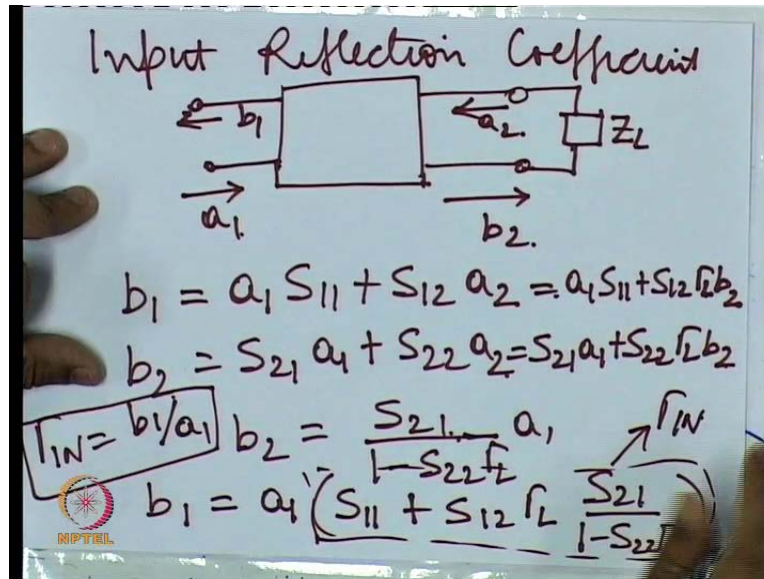 Input Reflection Coefficient
b1
a2.
ZL
a1.
b2.
b1 = a1 S11 + S12 a2 = a1 S11 + S12 ΓL b2
b2 = S21 a1 + S22 a2 = S21 a1 + S22 ΓL b2
ΓIN = b1/a1
b2 = S21 / 1-S22 ΓL a1
ΓIN
b1 = a1 (S11 + S12 ΓL S21 / 1-S22 Γ
NPTEL